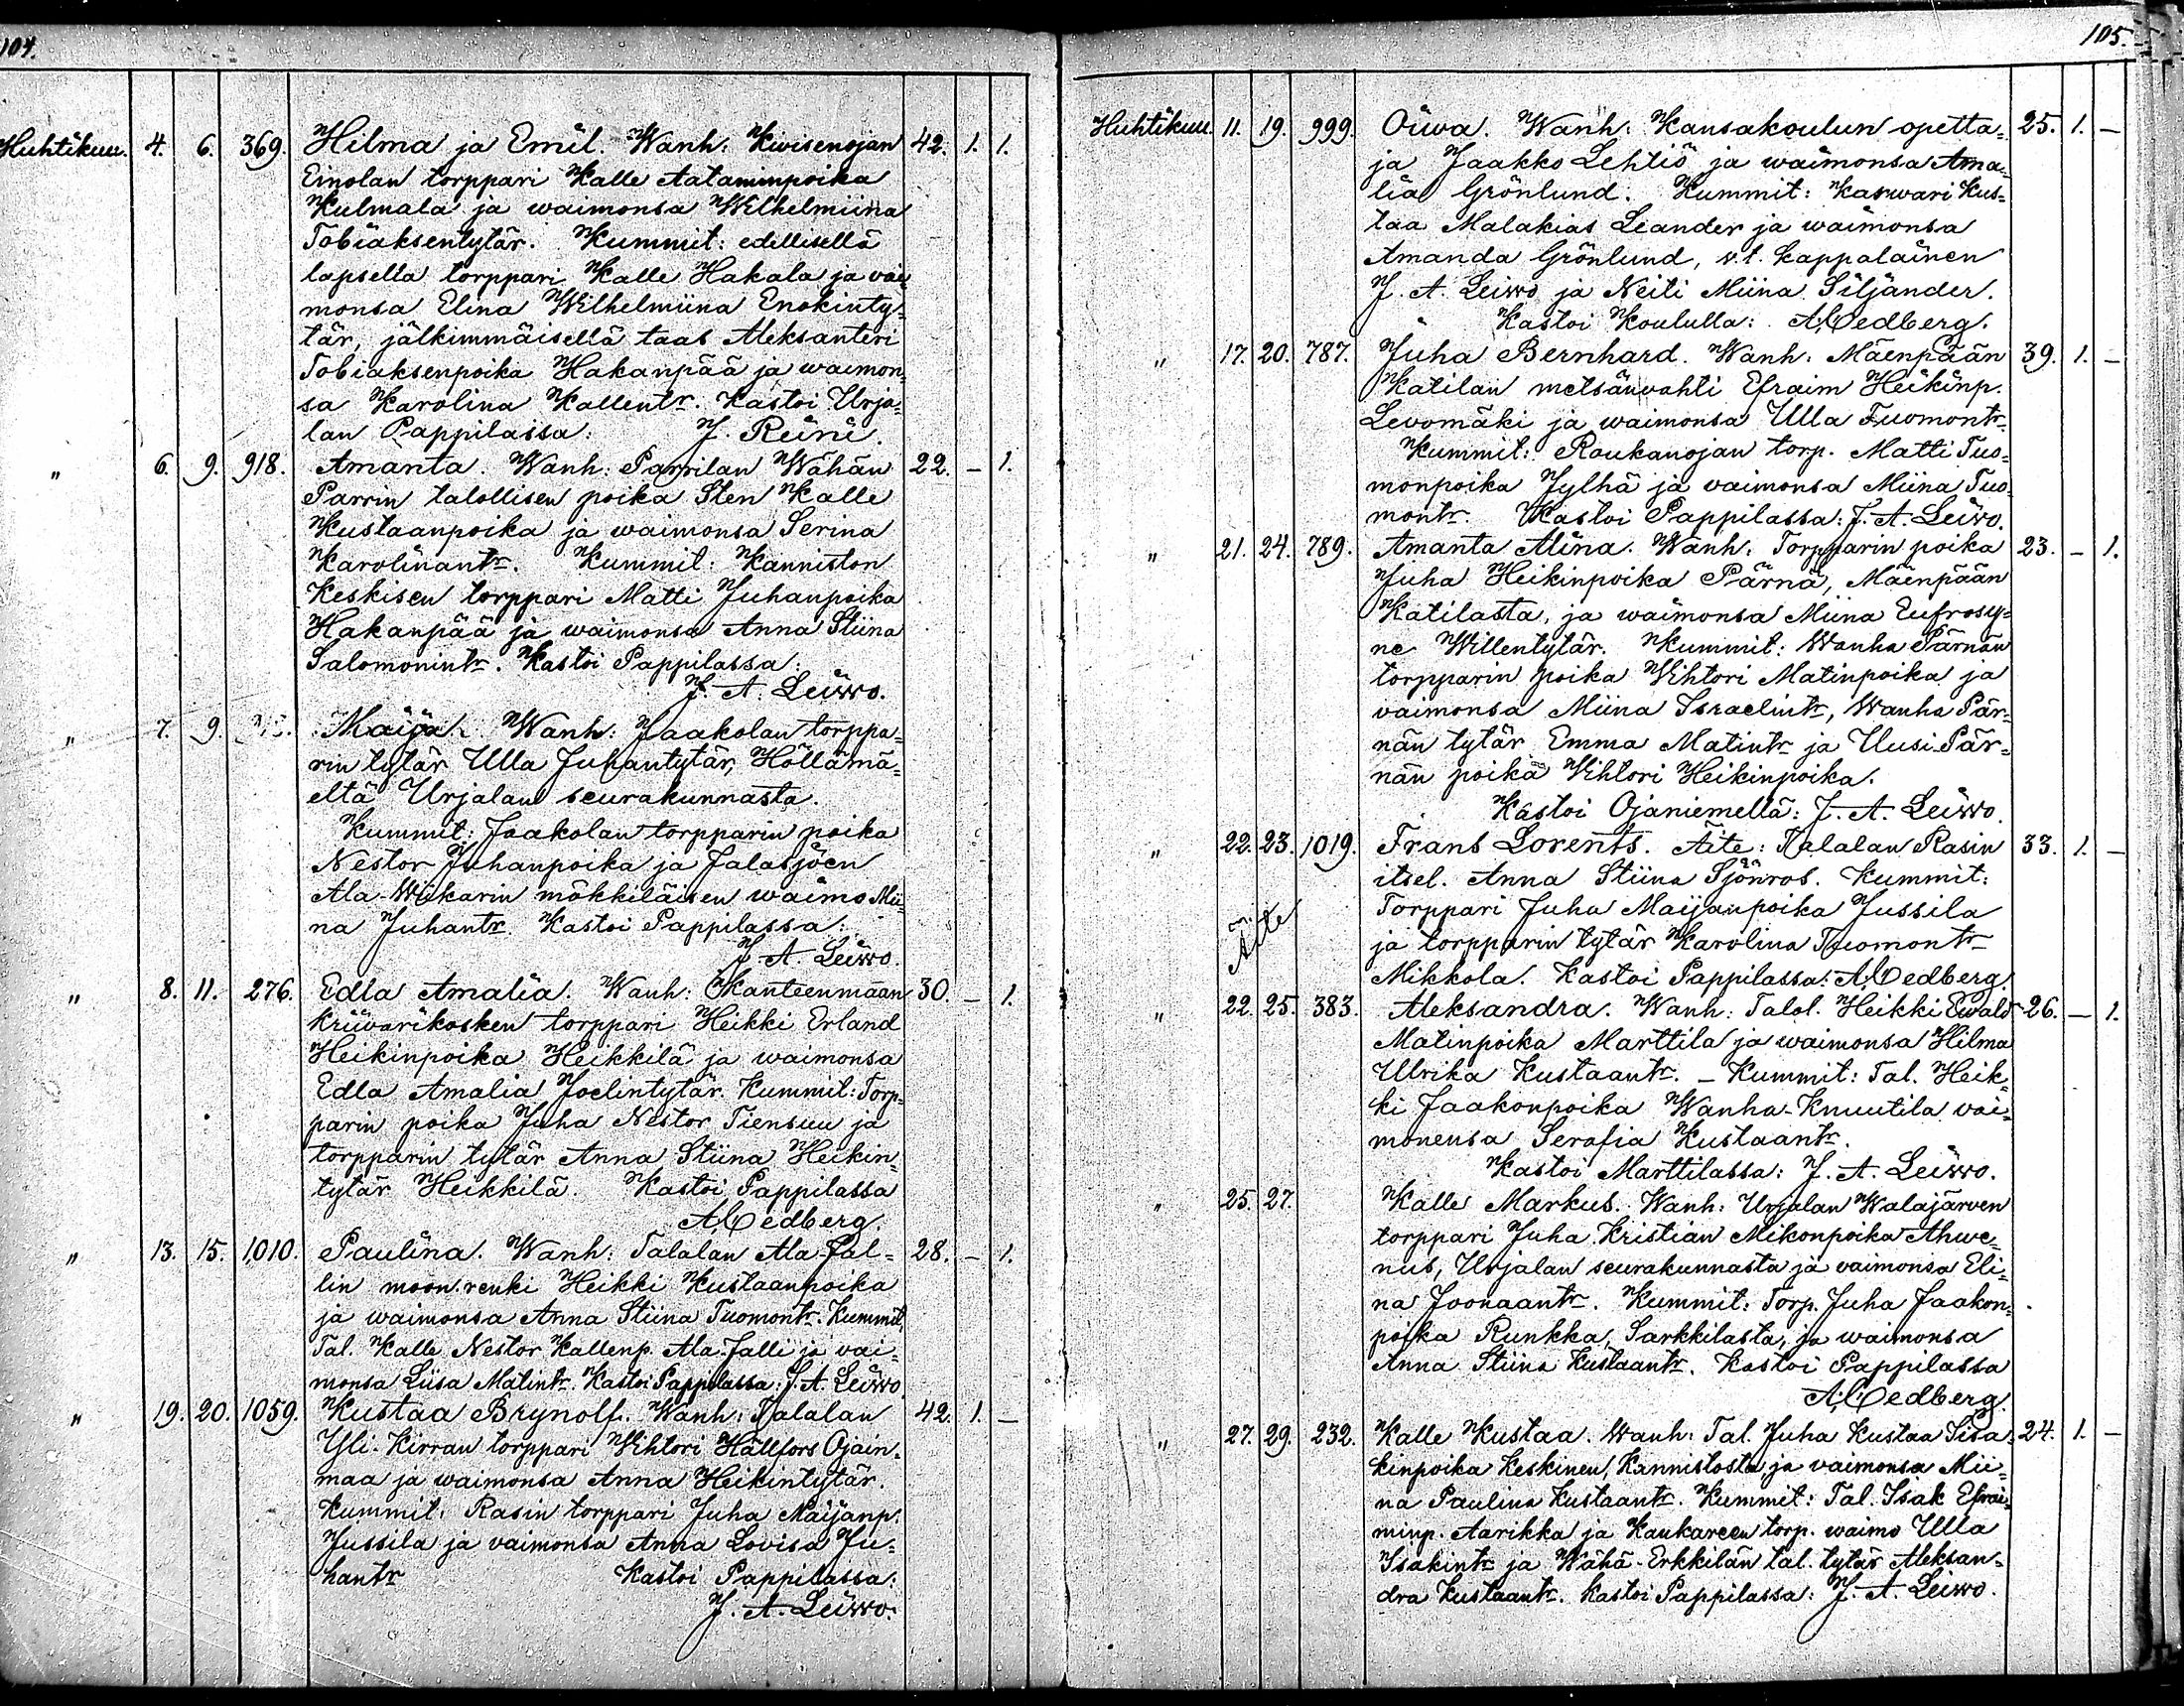 104.
Huhtikuu. 4. 6. 369. Hilma ja Emil. Wanh: Kivisenojan 42. 1. 1.
Einolan torppari Kalle Aataminpoika
Kulmala ja waimonsa Wilhelmiina
Tobiaksentytär. Kummit: edellisellä
lapsella torppari Kalle Hakala ja vai-
monsa Elina Wilhelmiina Enokinty-
tär, jälkimmäisellä taas Aleksanteri
Tobiaksenpoika Hakanpää ja waimon-
sa Karolina Kallentr. Kastoi Urja-
lan Pappilassa: J. Reini.
" 6. 9. 918. Amanta. Wanh: Parrilan Wähän 22. – 1.
Parrin talollisen poika Sten Kalle
Kustaanpoika ja waimonsa Serina
Karolinantr. Kummit: Kanniston
Keskisen torppari Matti Juhanpoika
Hakanpää ja waimonsa Anna Stiina
Salomonintr. Kastoi Pappilassa:
J. A. Leiwo.
" 7. 9. Maija. Wanh: Jaakolan torppa-
rin tytär Ulla Juhantytär, Höllämä-
eltä Urjalan seurakunnasta.
Kummit: Jaakolan torpparin poika
Nestor Juhanpoika ja Jalasjöen
Ala-Wiikarin mökkiläisen waimo Mii-
na Juhantr. Kastoi Pappilassa:
J. A. Leiwo.
" 8. 11. 276. Edla Amalia. Wanh: Kanteenmaan 30. – 1.
Kriivarikosken torppari Heikki Erland
Heikinpoika Heikkilä ja waimonsa
Edla Amalia Joelintytär. Kummit: Torp-
parin poika Juha Nestor Tiensuu ja
torpparin tytär Anna Stiina Heikin-
tytär Heikkilä. Kastoi Pappilassa
A. Cedberg.
" 13. 15. 1010. Paulina. Wanh: Talalan Ala-Jal-
28. – 1.
lin moon.renki Heikki Kustaanpoika
ja waimonsa Anna Stiina Tuomontr. Kummit,
Tal. Kalle Nestor Kallenp. Ala-Jalli ja vai-
monsa Liisa Matintr. Kastoi Pappilassa: J. A. Leiwo
" 19. 20. 1059. Kustaa Brynolf. Wanh: Talalan 42. 1. –
Yli-Kirran torppari Vihtori Hällfors Ojain-
maa ja waimonsa Anna Heikintytär.
Kummit: Rasin torppari Juha Maijanp.
Jussila ja vaimonsa Anna Lovisa Ju-
hantr Kastoi Pappilassa:
J. A. Leiwo.
105.
Huhtikuu. 11. 19. 999. Oiwa. Wanh: Kansakoulun opetta- 25. 1. –
ja Jaakko Lehtiö ja waimonsa Ama-
lia Grönlund. Kummit: Kaswari Kus-
taa Malakias Leander ja waimonsa
Amanda Grönlund, v.t. kappalainen
J. A. Leiwo ja Neiti Miina Siljander.
Kastoi Koululla: A. Cedberg.
" 17. 20. 787. Juha Bernhard. Wanh: Mäenpään 39. 1. –
Katilan metsänvahti Efraim Heikinp.
Levomäki ja waimonsa Ulla Tuomontr.
Kummit: Roukanojan torp. Matti Tuo-
monpoika Jylhä ja vaimonsa Miina Tuo-
montr. Kastoi Pappilassa: J. A. Leiwo.
" 21. 24. 789. Amanta Alina. Wanh: Torpparin poika 23. – 1.
Juha Heikinpoika Pärnä, Mäenpään
Katilasta, ja waimonsa Miina Eufrosy-
ne Willentytär. Kummit: Wanha Pärnän
torpparin poika Vihtori Matinpoika ja
vaimonsa Miina Israelintr, Wanha Pär-
nän tytär Emma Matintr ja Uusi-Pär-
nän poika Vihtori Heikinpoika.
Kastoi Ojaniemellä: J. A. Leiwo.
" 22. 23. 1019. Frans Lorents. Äite: Talalan Rasin 33. 1. –
itsel. Anna Stiina Sjönros. Kummit:
Torppari Juha Maijanpoika Jussila
Äite
ja torpparin tytär Karolina Tuomontr
Mikkola. Kastoi Pappilassa: A. Cedberg.
" 22. 25. 383. Aleksandra. Wanh: Talol. Heikki Ewald 26. – 1.
Matinpoika Marttila ja waimonsa Hilma
Ulrika Kustaantr. – Kummit: Tal. Heik-
ki Jaakonpoika Wanha-Knuutila vai-
monensa Serafia Kustaantr.
Kastoi Marttilassa: J. A. Leiwo.
" 25. 27. Kalle Markus. Wanh: Urjalan Walajärven
torppari Juha Kristian Mikonpoika Ahwe-
nus, Urjalan seurakunnasta ja vaimonsa Eli-
na Joonaantr. Kummit: Torp. Juha Jaakon-
poika Runkka, Sarkkilasta, ja waimonsa
Anna Stiina Kustaantr. Kastoi Pappilassa
A. Cedberg.
" 27. 29. 232. Kalle Kustaa. Wanh: Tal. Juha Kustaa Iisa- 24. 1. –
kinpoika Keskinen, Kannistosta, ja vaimonsa Mii-
na Paulina Kustaantr. Kummit: Tal. Isak Efrai-
minp. Aarikka ja Kaukareen torp. waimo Ulla
Isakintr ja Wähä-Erkkilän tal. tytär Aleksan-
dra Kustaantr. Kastoi Pappilassa: J. A. Leiwo.